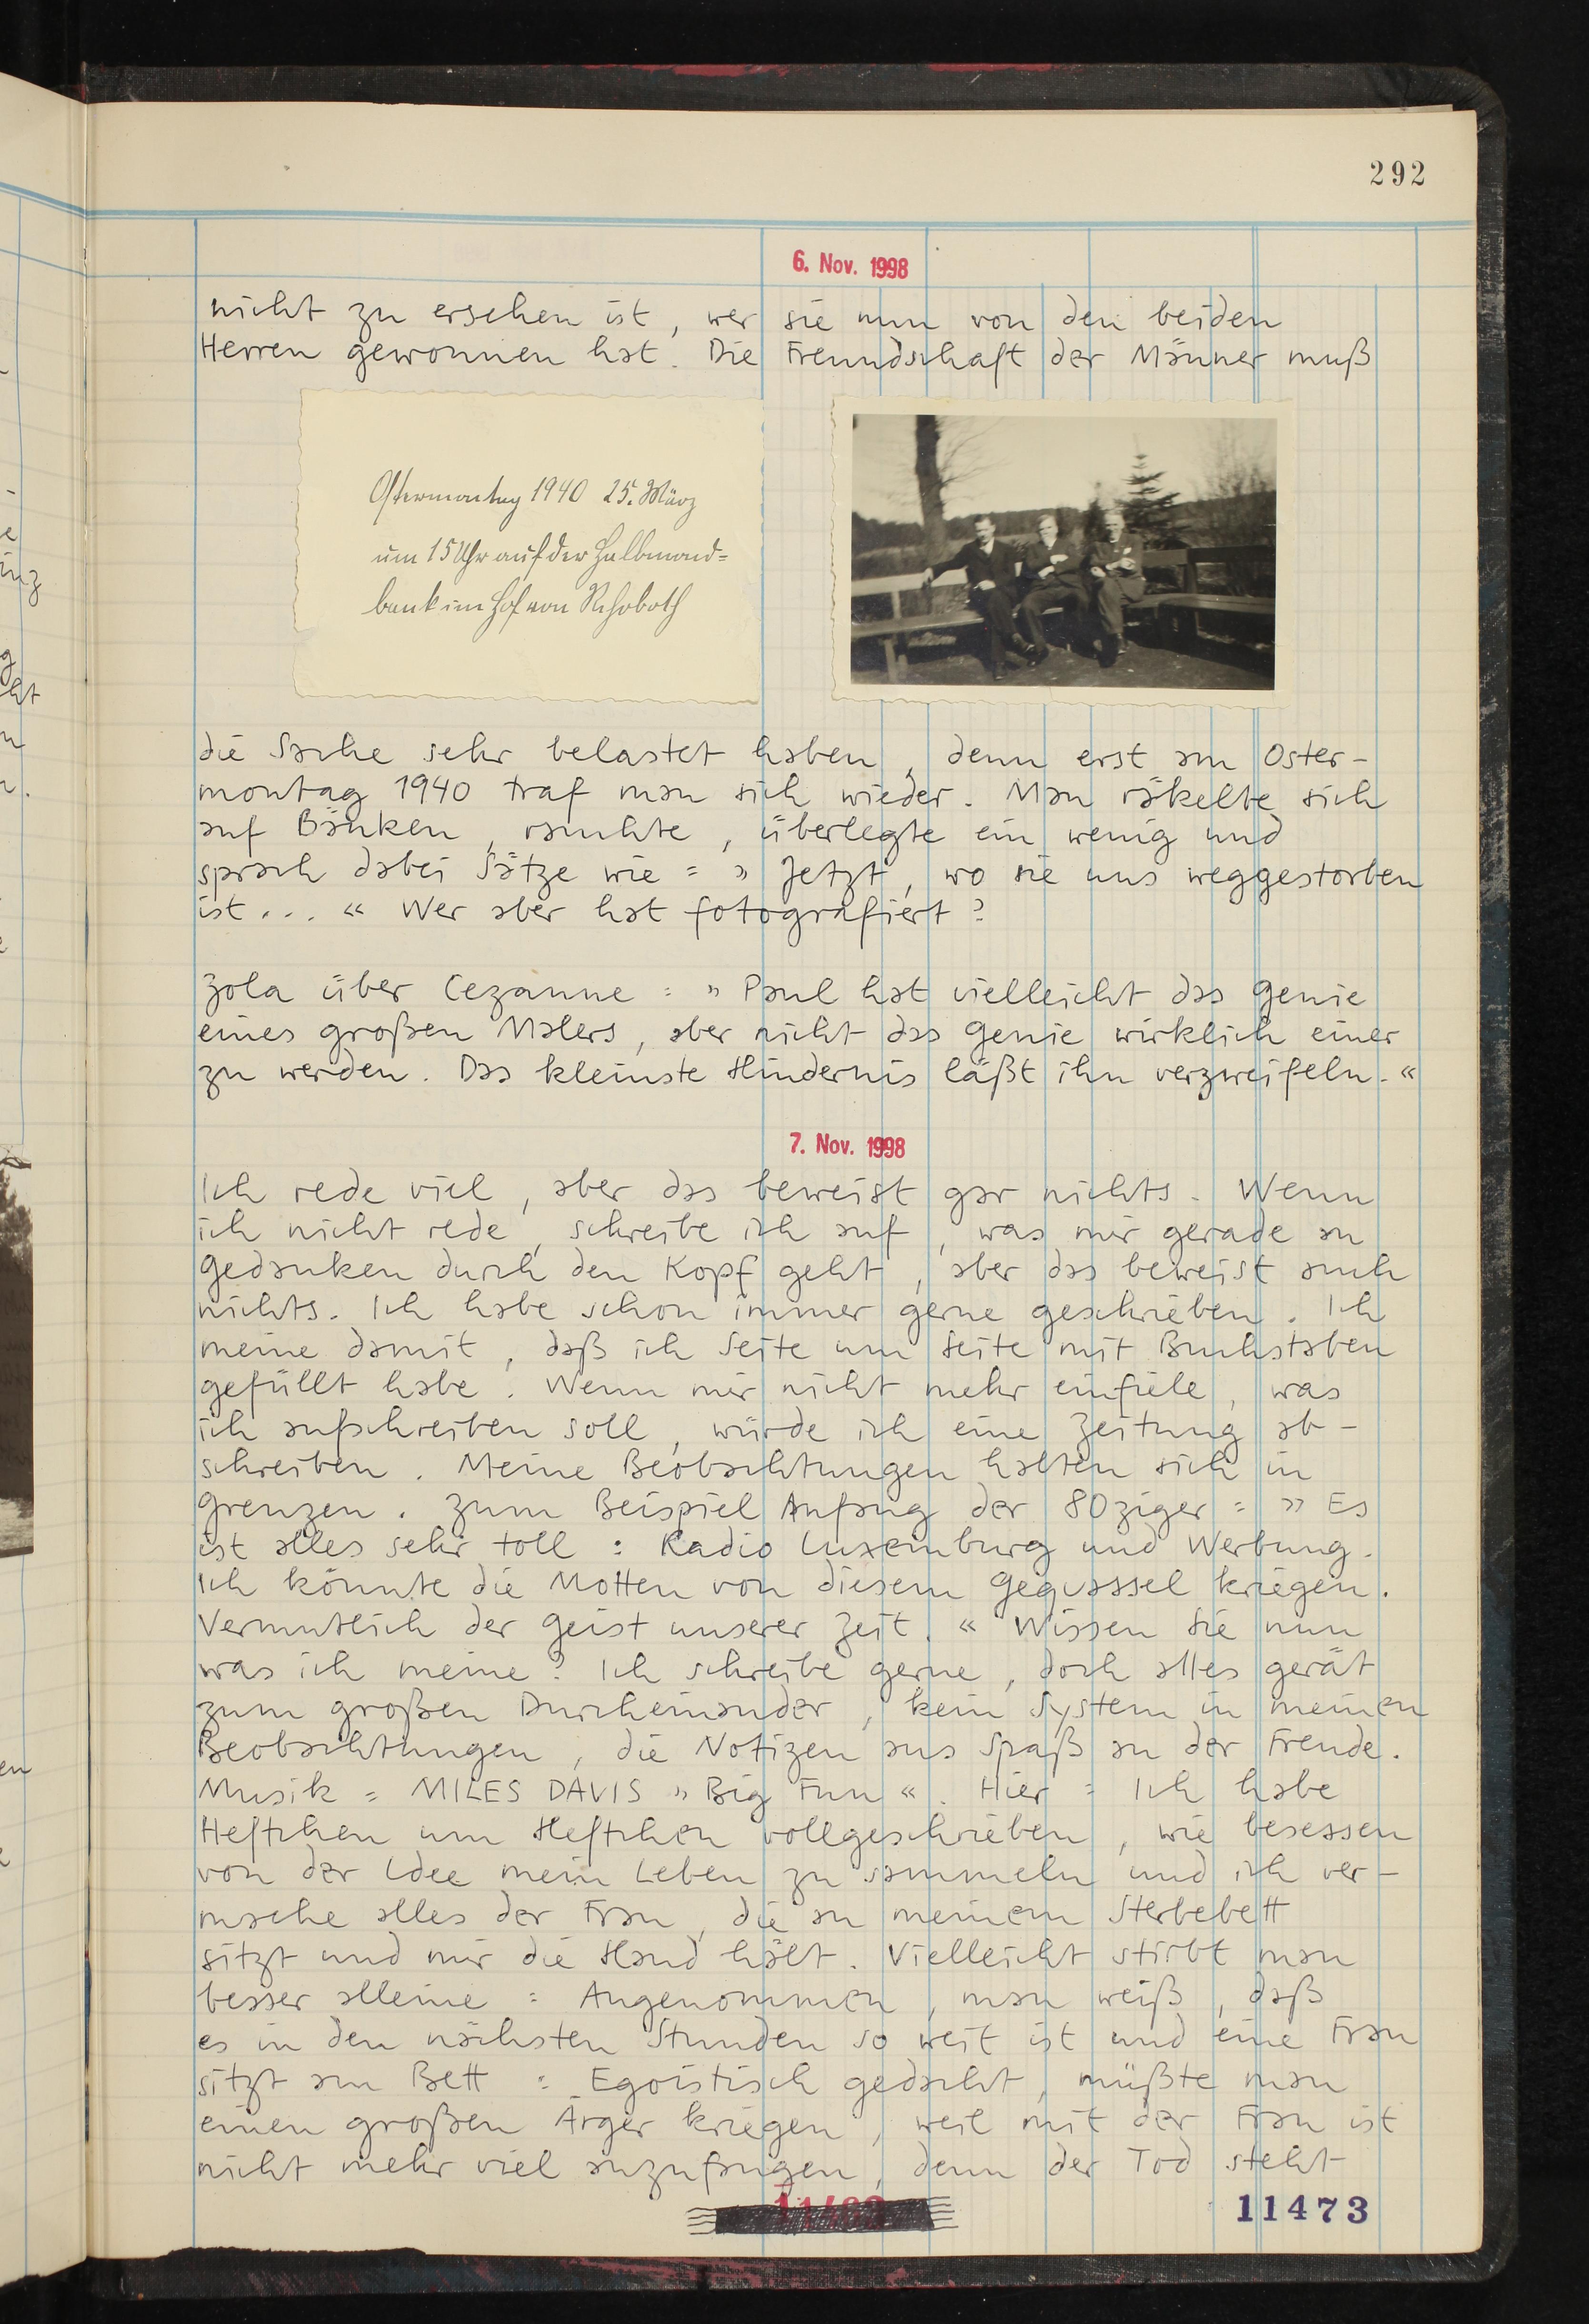 292
6. Nov. 1998
nicht zu ersehen ist, wer sie nun von den beiden
Herren gewonnen hat. Die Freundschaft der Männer muß
Ostermontag 1940 25. März
um 15 Uhr auf der Halbmond=
bank im Hof von Rehoboth
die Sache sehr belastet haben, denn erst am Oster-
montag 1940 traf man sich wieder. Man räkelte sich
auf Bänken, rauchte, überlegte ein wenig und
sprach dabei Sätze wie: » Jetzt, wo sie uns weggestorben
ist... « Wer aber hat fotografiert?
Zola über Cezanne: » Paul hat vielleicht das Genie
eines großen Malers, aber nicht das Genie wirklich einer
zu werden. Das kleinste Hindernis läßt ihn verzweifeln. «
7. Nov. 1998
Ich rede viel, aber das beweist gar nichts. Wenn
ich nicht rede, schreibe ich auf, was mir gerade an
Gedanken durch den Kopf geht, aber das beweist auch
nichts. Ich habe schon immer gerne geschrieben. Ich
meine damit, daß ich Seite um Seite mit Buchstaben
gefüllt habe. Wenn mir nicht mehr einfiele, was
ich aufschreiben soll, würde ich eine Zeitung ab-
schreiben. Meine Beobachtungen halten sich in
Grenzen. Zum Beispiel Anfang der 80ziger: » Es
ist alles sehr toll: Radio Luxemburg und Werbung.
Ich könnte die Motten von diesem Gequassel kriegen.
Vermutlich der Geist unserer Zeit. « Wissen Sie nun
was ich meine? Ich schreibe gerne, doch alles gerät
zum großen Durcheinander, kein System in meinen
Beobachtungen, die Notizen aus Spaß an der Freude.
Musik: MILES DAVIS » Big Fun «. Hier: Ich habe
Heftchen um Heftchen vollgeschrieben, wie besessen
von der Idee mein Leben zu sammeln und ich ver-
mache alles der Frau, die an meinem Sterbebett
sitzt und mir die Hand hält. Vielleicht stirbt man
besser alleine: Angenommen, man weiß, daß
es in den nächsten Stunden so weit ist und eine Frau
sitzt am Bett: Egoistisch gedacht, müßte man
einen großen Ärger kriegen, weil mit der Frau ist
nicht mehr viel anzufangen, denn der Tod steht
11473